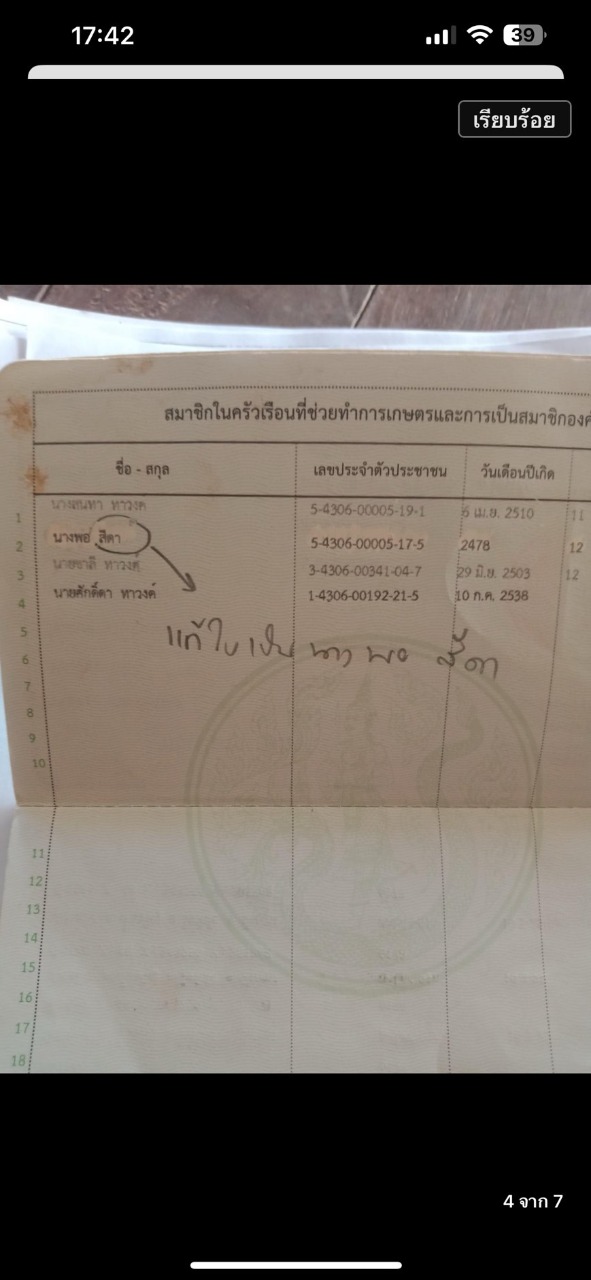 17:42
39
เรียบร้อย
สมาชิกในครัวเรือนที่ช่วยทำการเกษตรและการเป็นสมาชิกองค์
ชื่อ - สกุล เลขประจำตัวประชาชน วันเดือนปีเกิด
1 ทาวงค์ 5-4306-00005-19-1 6 เม.ย. 2510 11
2 นางพอ สีดา 5-4306-00005-17-5 2478 12
3 นายชาลี ทาวงค์ 3-4306-00341-04-7 29 มิ.ย. 2503 12
4 นายศักดิ์ดา ทาวงค์ 1-4306-00192-21-5 10 ก.ค. 2538
แก้ เป็น นาง พอ สีดา
5
6
7
8
9
10
11
12
13
14
15
16
17
18
4 จาก 7